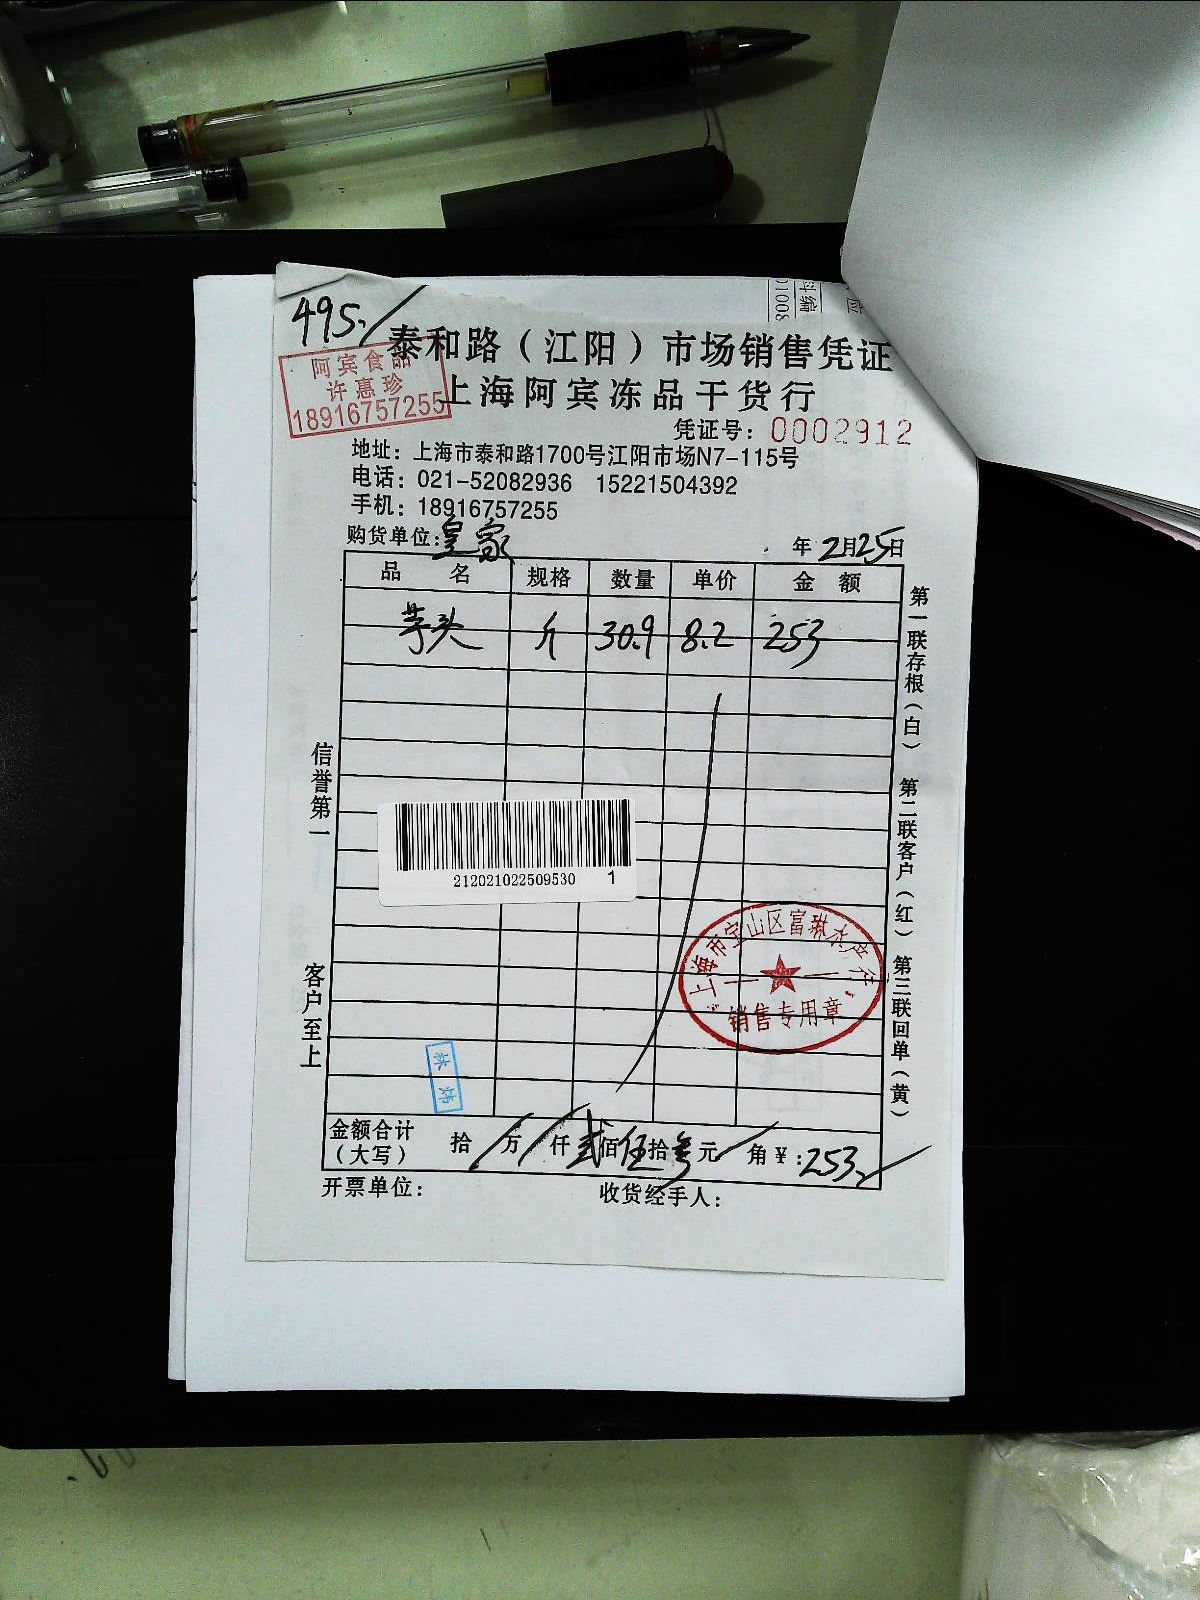 495.
泰和路（江阳）市场销售凭证
上海阿宾冻品干货行
阿宾食品
许惠珍
18916757255
凭证号：0002912
地址：上海市泰和路1700号江阳市场N7-115号
电话：021-52082936 15221504392
手机：18916757255
购货单位：皇家 年2月25日
品名 规格 数量 单价 金额
芋头 斤 30.9 8.2 253
信誉第一
客户至上
第一联存根（白） 第二联客户（红） 第三联回单（黄）
212021022509530 1
上海市宝山区富琳水产行
销售专用章
金额合计（大写） 拾 万 仟 贰佰伍拾叁元 角 ¥：253
开票单位： 收货经手人：